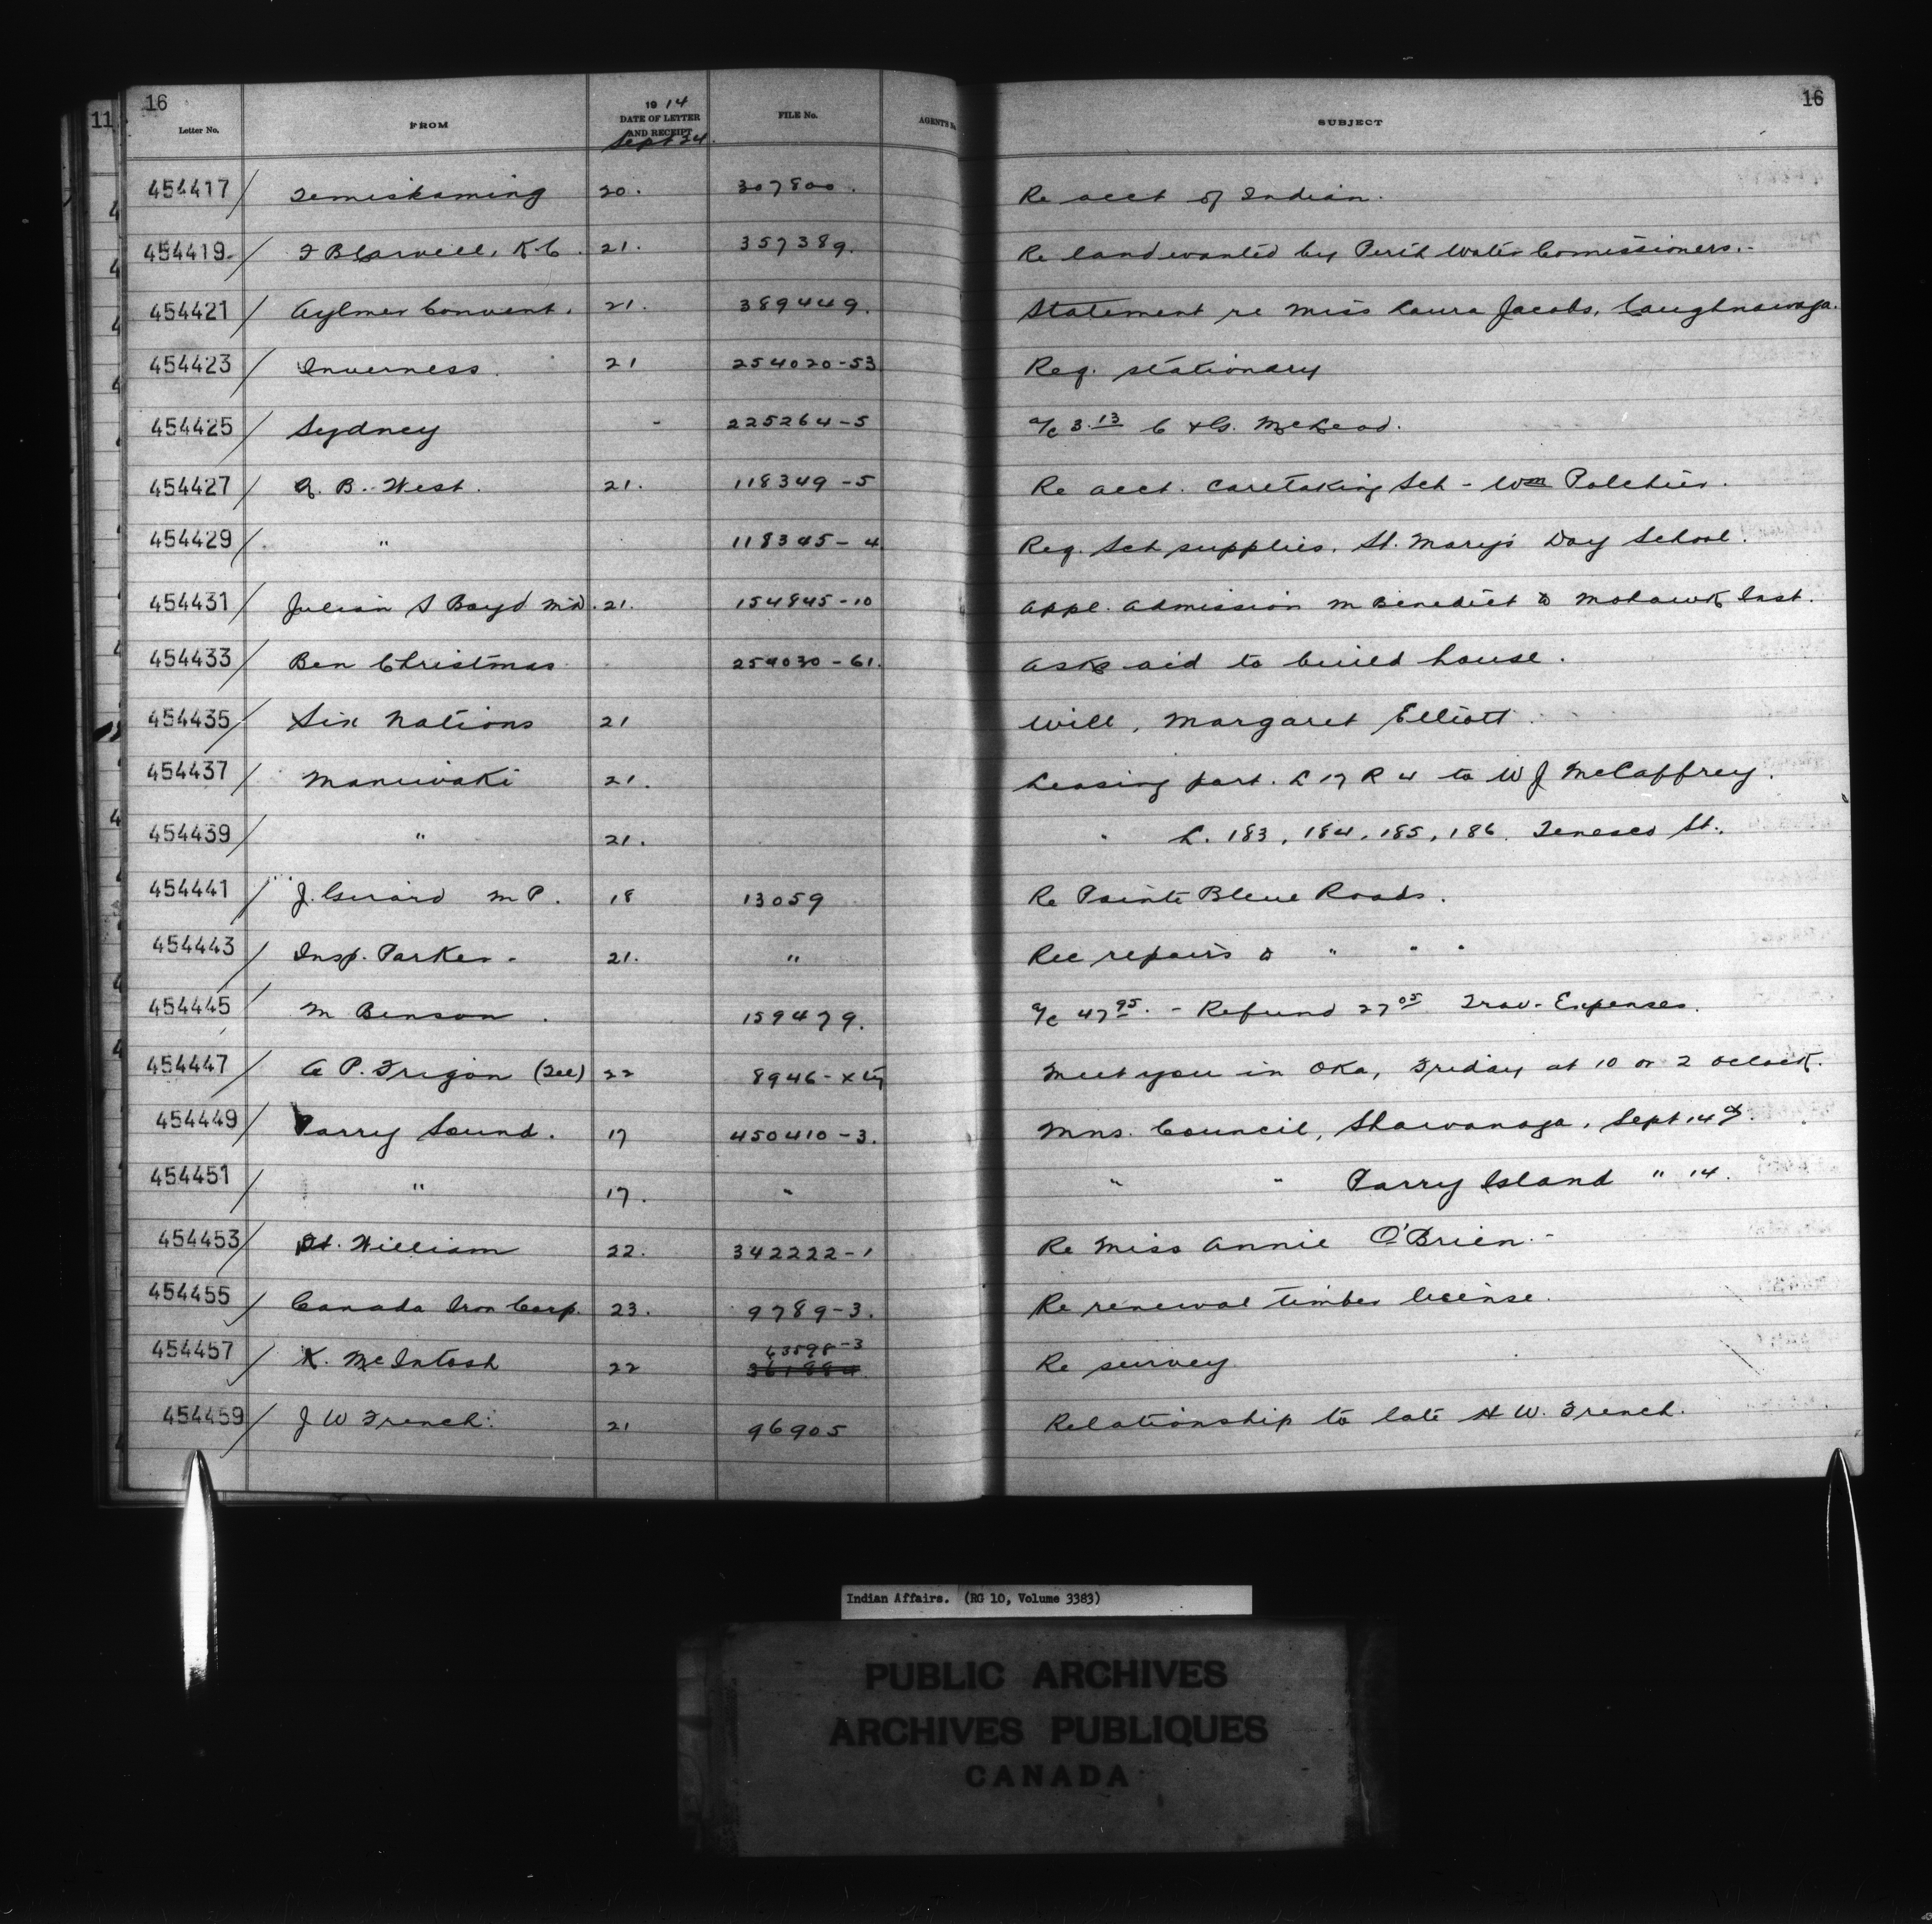 11
16
16
Letter No. FROM 1914 DATE OF LETTER AND RECEIPT FILE No. AGENT'S SUBJECT
Sept 24.
454417 Temiskaming 20. 307800. Re acct of Indian.
454419 21. 357389. Re land wanted by Perth Water Comissioners.
454421 Aylmer Convent. 21. 389449. Statement re Miss Laura Jacobs, Caughnawaga.
454423 Inverness. 21 254020-53 Req. stationary
454425 Sydney - 225264-5 a/c 3.13 C & G. McLeod.
454427 A. B. West. 21. 118349-5 Re acct. Caretaking Sch - Wm Polchies.
454429 " 118345-4 Req. Sch supplies, St. Mary's Day School.
454431 Julian S Boyd M.D. 21. 154845-10 Appl. admission M Benedict to Mohawk Inst.
454433 Ben Christmas 254030-61. Asks aid to build house.
454435 Six Nations 21 Will, Margaret Elliott.
454437 Maniwaki 21. Leasing part. L 17 R 4 to W J McCaffrey.
454439 " 21. " L. 183, 184, 185, 186. Tenesco St.
454441 J. Girard M P. 18 13059 Re Pointe Bleue Roads.
454443 Insp. Parker. 21. " Rec repairs to " " "
454445 M Benson. 159479. a/c 47.95. - Refund 27.05 Trav. Expenses.
454447 A P. Trigon (Tel) 22 8946- Meet you in Oka, Friday at 10 or 2 oclock.
454449 Parry Sound. 17 450410-3. Mns. Council, Shawanaga, Sept 14th.
454451 " 17. " " " Parry Island " 14.
454453 Ft. William 22. 342222-1 Re Miss Annie O'Brien.
454455 Canada Iron Corp. 23. 9789-3. Re renewal timber license.
63598-3
454457 K. McIntosh 22 361884 Re survey
454459 J W French. 21 96905 Relationship to late H W. French.
Indian Affairs. (RG 10, Volume 3383)
PUBLIC ARCHIVES
ARCHIVES PUBLIQUES
CANADA